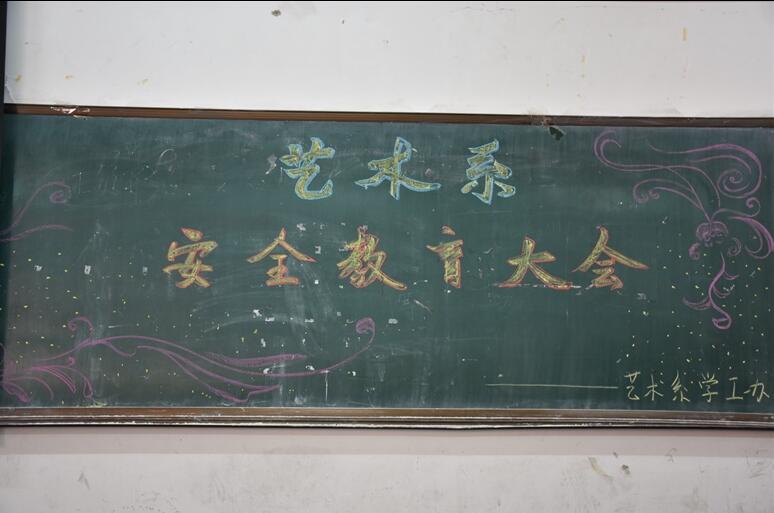 艺术系
安全教育大会
——艺术系学工办